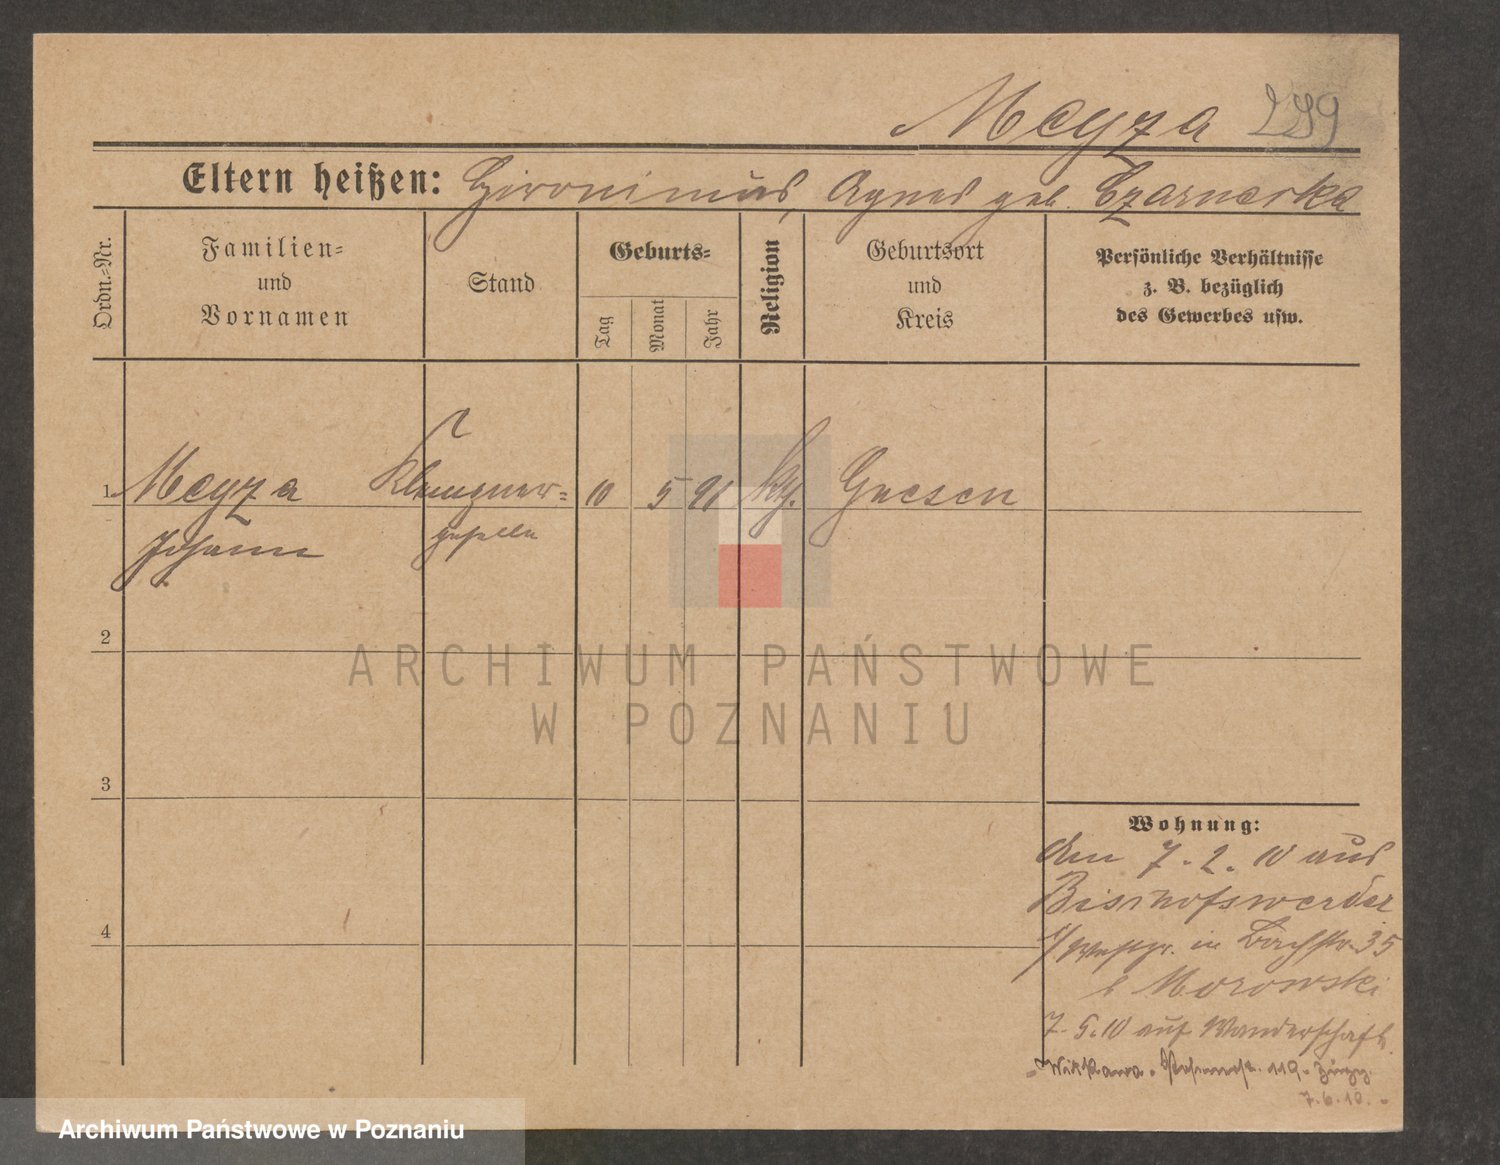 Meyza 299
Eltern heißen: Hironimus, Agnes geb. Czarnecka
Ordn.-Nr.
Familien-
und
Vornamen
Stand
Geburts-
Tag
Monat
Jahr
Religion
Geburtsort
und
Kreis
Persönliche Verhältnisse
z. B. bezüglich
des Gewerbes usw.
1 Meyza Klempner- 10 5 91 Gnesen
Johann geselle
2
3
4
Wohnung:
Am 7.2.10 aus
Bischofswerder
i/Westpr. in Bachstr. 35
b Morowski
7.5.10 auf Wanderschaft
119
7.6.10.-
ARCHIWUM PAŃSTWOWE
W POZNANIU
Archiwum Państwowe w Poznaniu